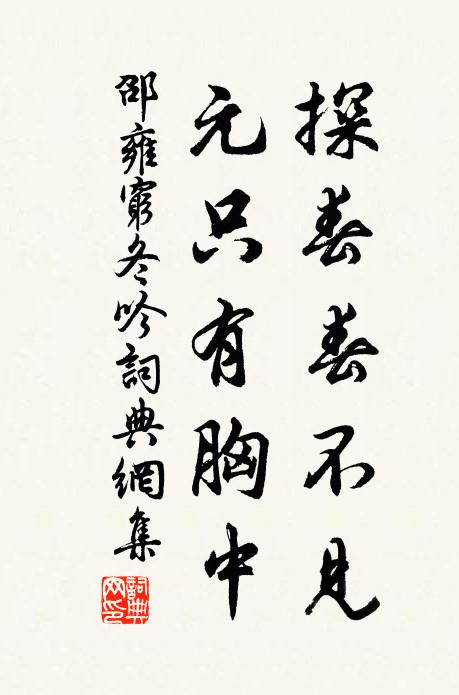 探春春不見
元只有胸中
邵雍窮冬吟詞典網集
詞典網印